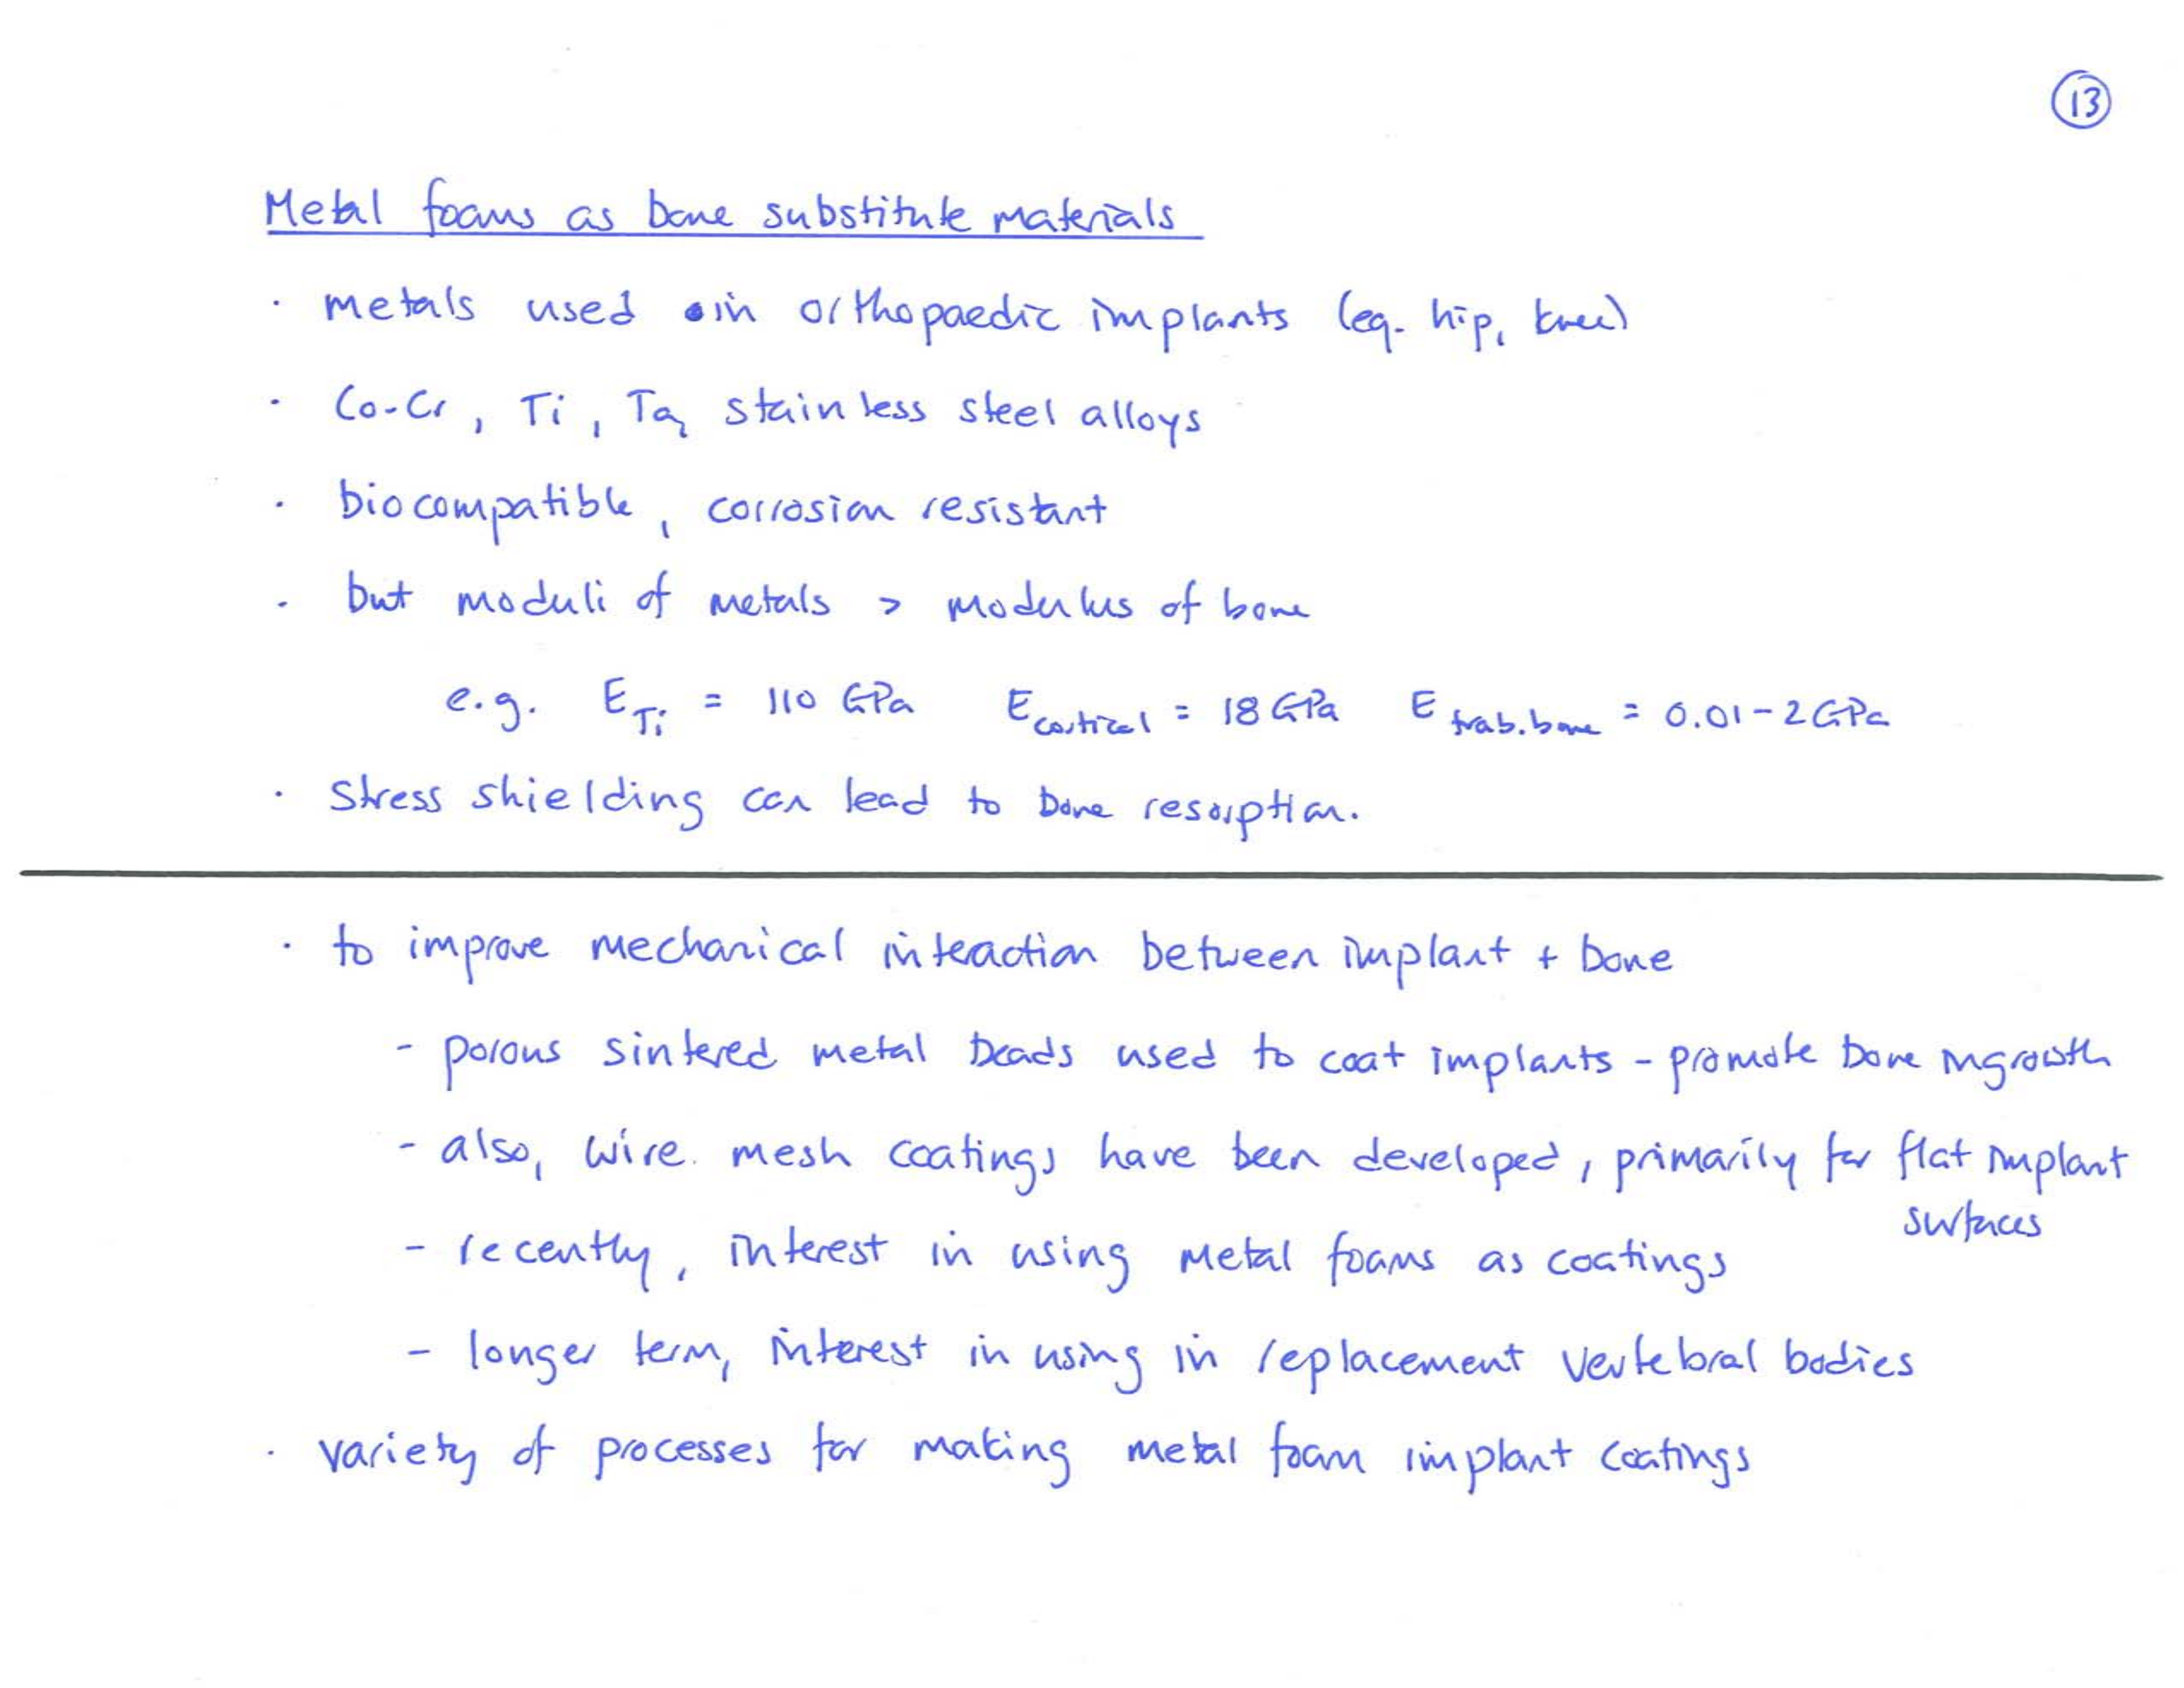 13
Metal foams as bone substitute materials
· metals used in orthopaedic implants (eg. hip, knee)
· Co-Cr, Ti, Ta, stainless steel alloys
· biocompatible, corrosion resistant
· but moduli of metals > modulus of bone
e.g. E_Ti = 110 GPa E_cortical = 18 GPa E_trab. bone = 0.01 - 2 GPa
· Stress shielding can lead to bone resorption.
· to improve mechanical interaction between implant + bone
- porous sintered metal beads used to coat implants - promote bone ingrowth
- also, wire mesh coatings have been developed, primarily for flat implant
surfaces
- recently, interest in using metal foams as coatings
- longer term, interest in using in replacement vertebral bodies
· variety of processes for making metal foam implant coatings